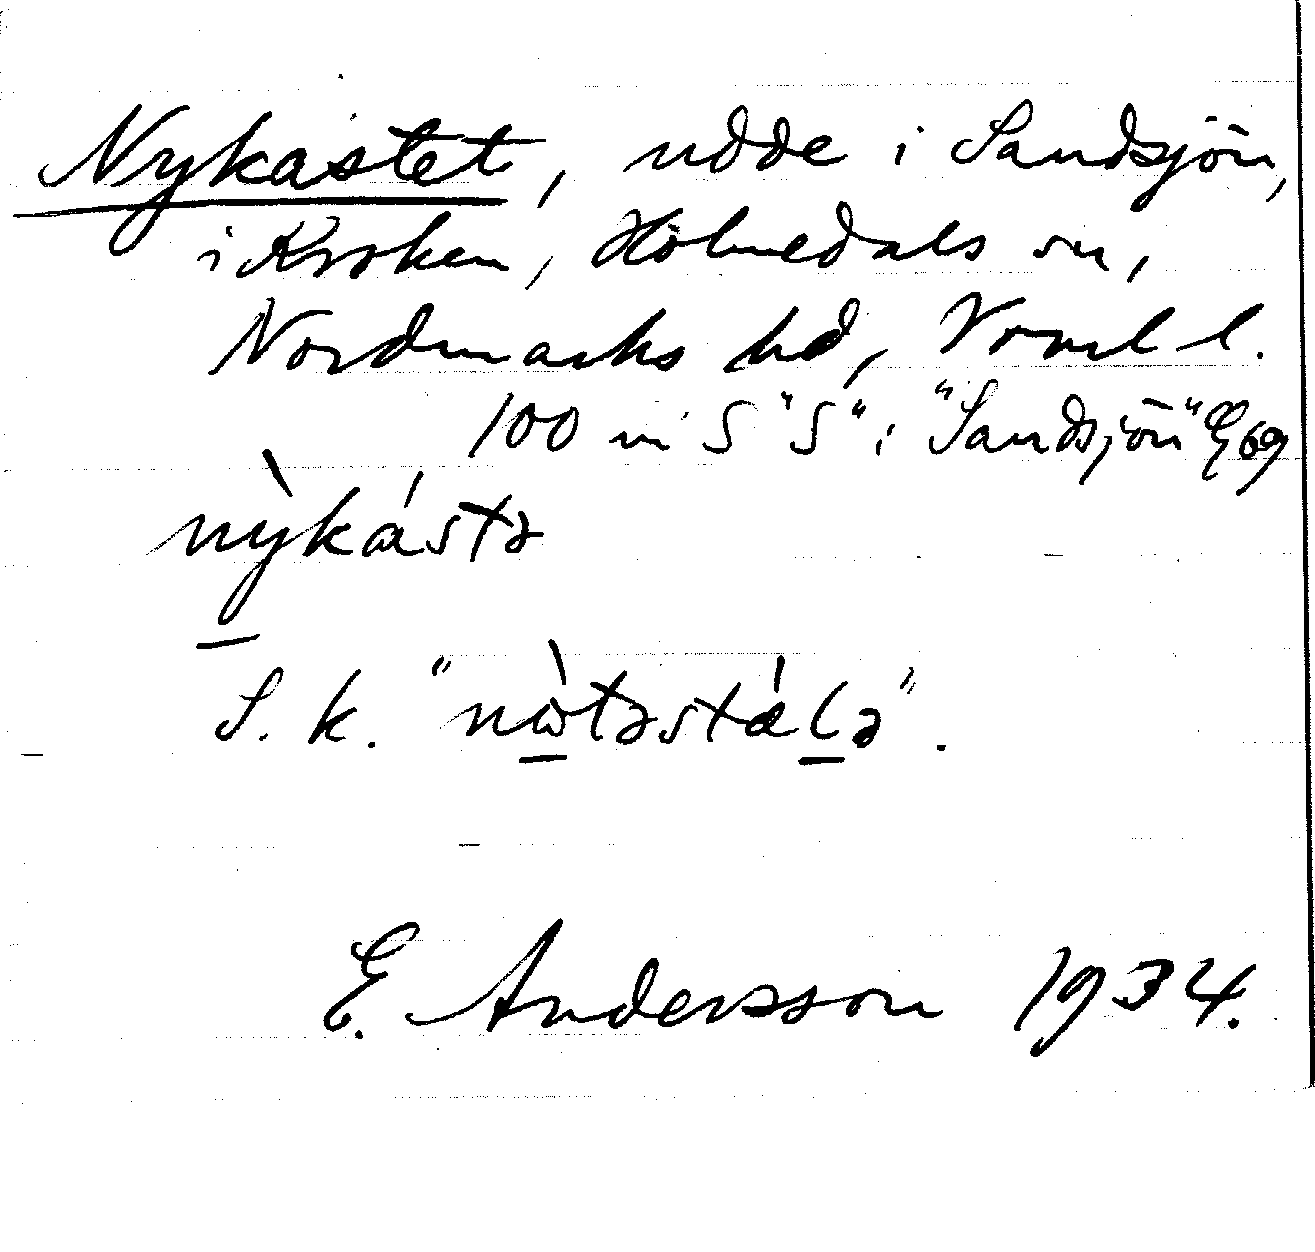 Nykastet, udde i Sandsjön,
i Kroken, Holmedals sn,
Nordmarks hd, Vrml l.
100 m S "S" i "Sandsjön" E 69
nỳkástə
S. k. "nὼtəstálə".
E. Andersson 1934.